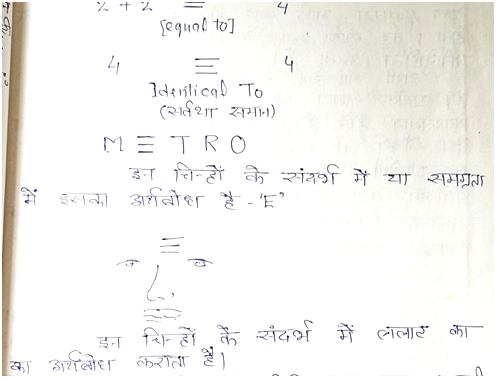 2 + 2 = 4
[equal to]
4 ≡ 4
Identical To
(सर्वथा समान)
M ≡ T R O
इन चिन्हों के संदर्भ में या समग्रता
में इसका अर्थबोध है - 'E'
इन चिन्हों के संदर्भ में ललाट का
का अर्थबोध कराता है।